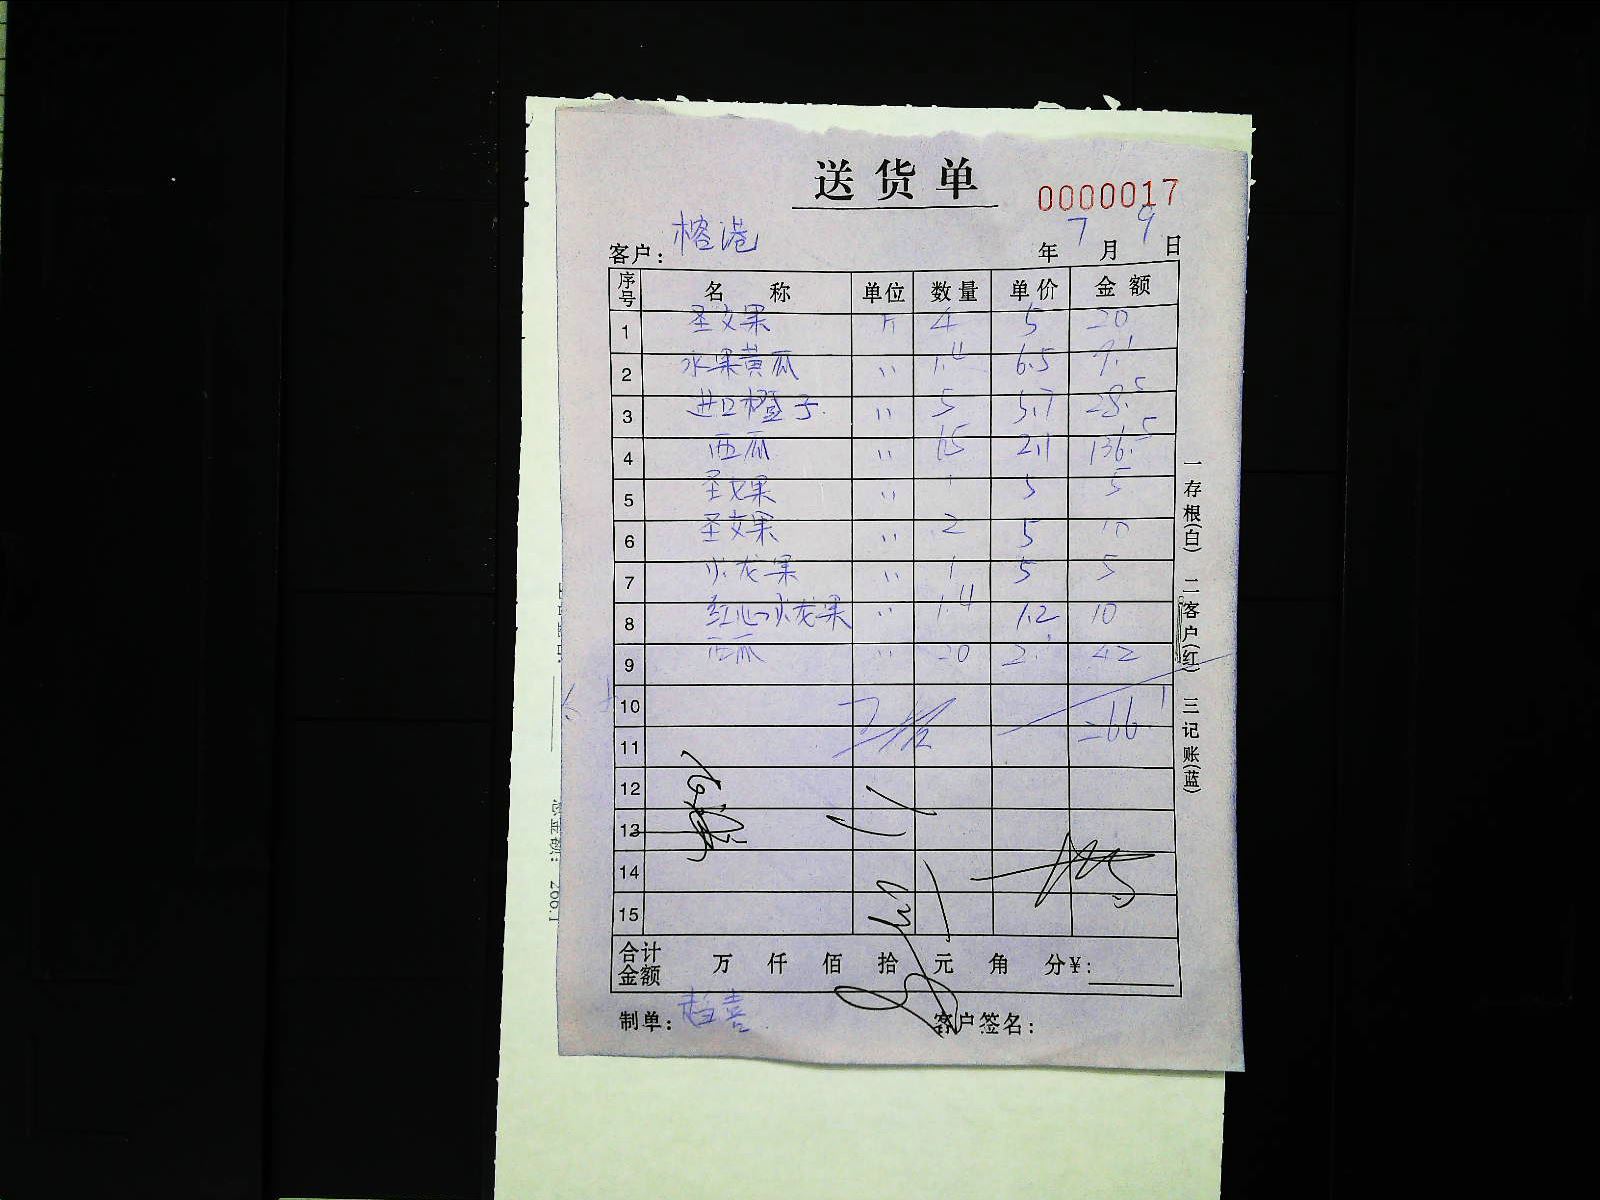 送货单
0000017
客户: 榕港 年 7 月 9 日
序号 名 称 单位 数量 单价 金额
1 圣女果 斤 4 5 20
2 水果黄瓜 〃 1.4 6.5 9.1
3 进口橙子 〃 5 5.7 28.5
4 西瓜 〃 65 2.1 136.5
5 圣女果 〃 1 5 5
6 圣女果 〃 2 5 10
7 火龙果 〃 1 5 5
8 红心火龙果 〃 1.4 10
9 西瓜 〃 20 2.1 42
10
11 266.1
12
13
14
15
合计金额 万 仟 佰 拾 元 角 分¥:
制单: 赵喜 客户签名:
一存根(白) 二客户(红) 三记账(蓝)
总金额: 266.1